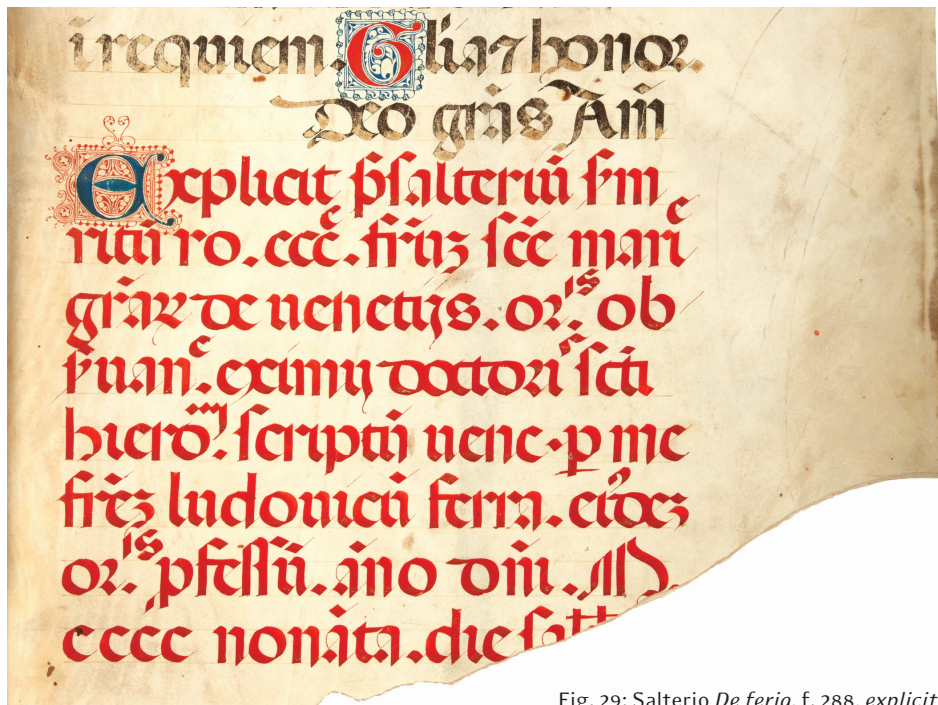 i requiem. Gliaꝫ honor.
Deo grãs Am̃
Explicit p̃salteriũ s̃m
ritũ ro. ecc̃ᵉ. fr̃uȝ sc̃e mariᵉ
gr̃aꝝ de uenetijs. orⁱˢ. ob
s̃uanᶜ. eximij doctoriˢ scti
hierõᵐⁱ. scriptũ uene. p me
fr̃eȝ ludouicũ ferra. eĩdeȝ
orⁱˢ. ꝓfessũ. ãno dñi. M.
cccc nonãta. die
Fig. 29: Salterio De feria, f. 288, explicit